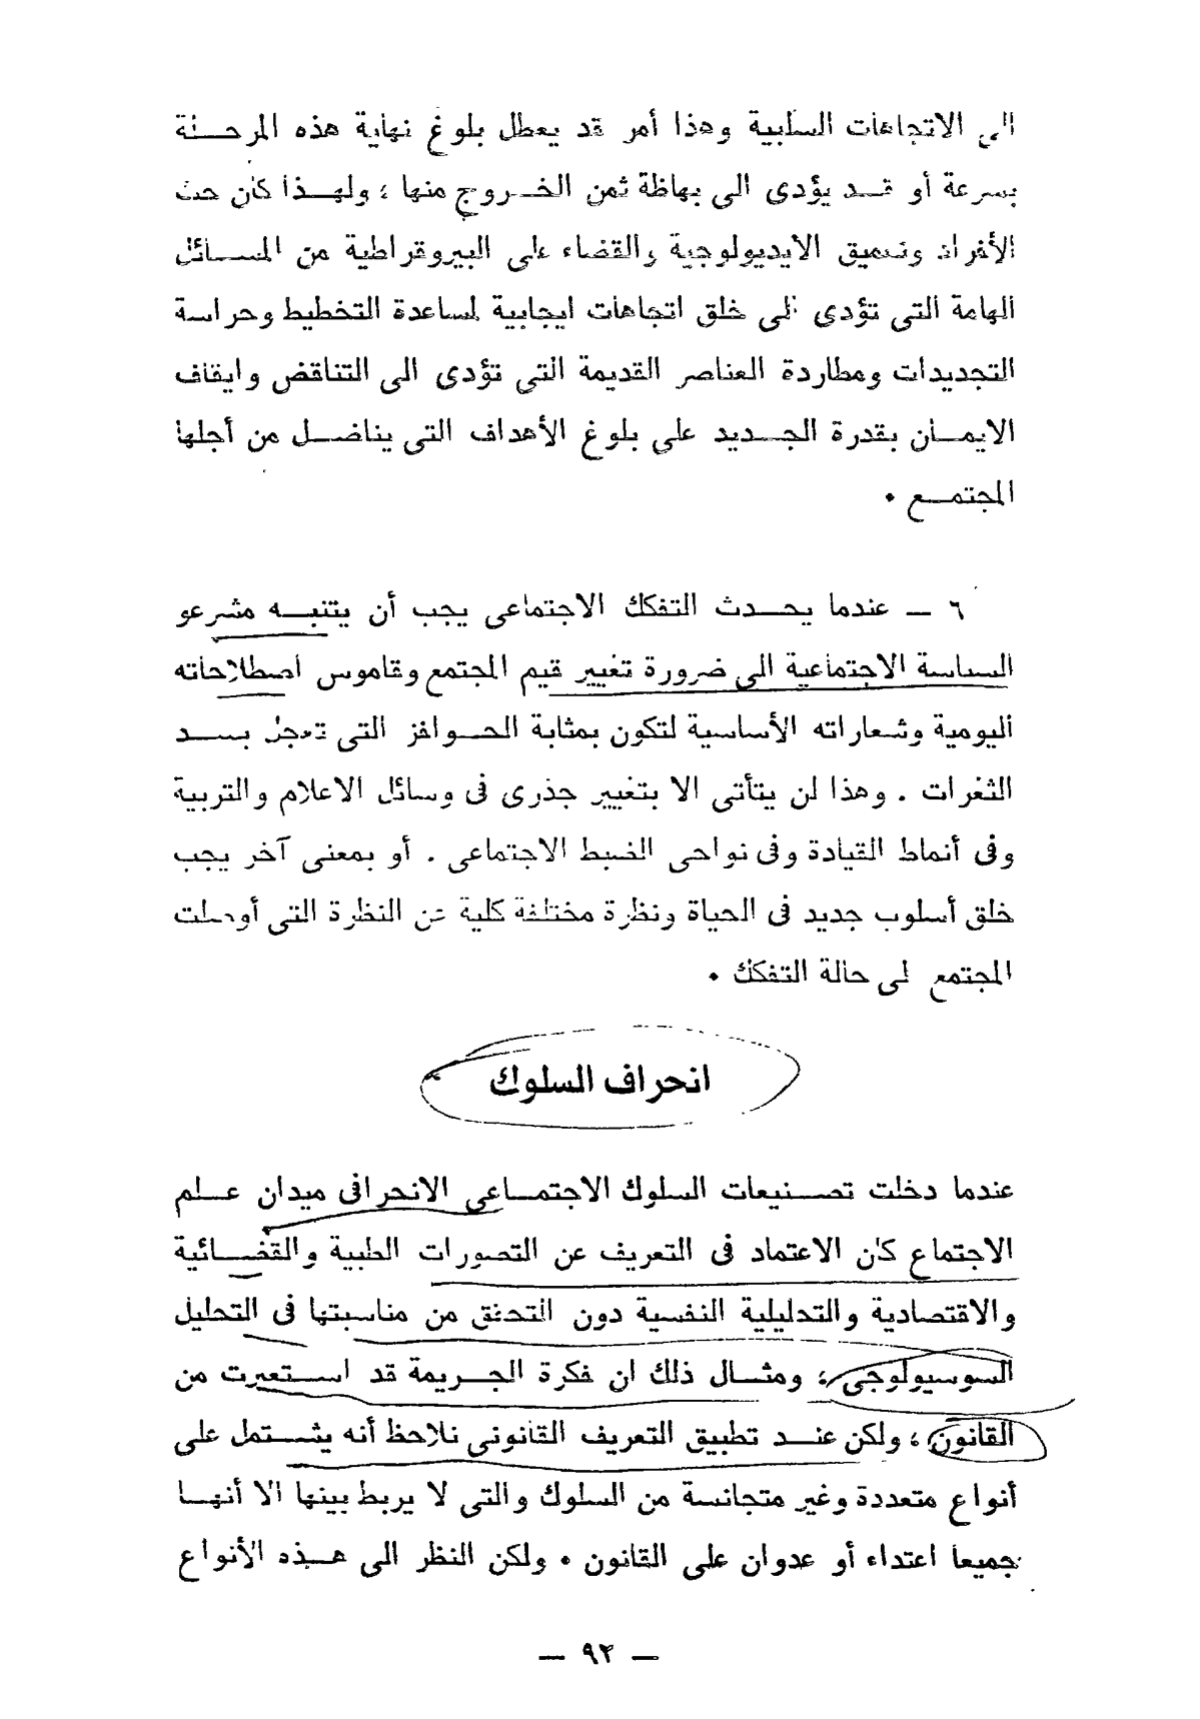 الى الاتجاهات السلبية وهذا أمر قد يعطل بلوغ نهاية هذه المرحلة
بسرعة أو قد يؤدى الى بهاظة ثمن الخروج منها ، ولهذا كان حث
الأفراد وتعميق الايديولوجية والقضاء على البيروقراطية من المسائل
الهامة التى تؤدى الى خلق اتجاهات ايجابية لمساعدة التخطيط وحراسة
التجديدات ومطاردة العناصر القديمة التى تؤدى الى التناقض وايقاف
الايمان بقدرة الجديد على بلوغ الأهداف التى يناضل من أجلها
المجتمع .
٦ — عندما يحدث التفكك الاجتماعى يجب أن يتنبه مشرعو
السياسة الاجتماعية الى ضرورة تغيير قيم المجتمع وقاموس اصطلاحاته
اليومية وشعاراته الأساسية لتكون بمثابة الحوافز التى تعجل بسد
الثغرات . وهذا لن يتأتى الا بتغيير جذرى فى وسائل الاعلام والتربية
وفى أنماط القيادة وفى نواحى الضبط الاجتماعى . أو بمعنى آخر يجب
خلق أسلوب جديد فى الحياة ونظرة مختلفة كلية عن النظرة التى أوصلت
المجتمع لى حالة التفكك .
انحراف السلوك
عندما دخلت تصنيعات السلوك الاجتماعى الانحرافى ميدان علم
الاجتماع كان الاعتماد فى التعريف عن التصورات الطبية والقضائية
والاقتصادية والتحليلية النفسية دون التحقق من مناسبتها فى التحليل
السوسيولوجى ، ومثال ذلك ان فكرة الجريمة قد استعيرت من
القانون ، ولكن عند تطبيق التعريف القانونى نلاحظ أنه يشتمل على
أنواع متعددة وغير متجانسة من السلوك والتى لا يربط بينها الا أنها
جميعا اعتداء أو عدوان على القانون . ولكن النظر الى هذه الأنواع
— ٩٢ —